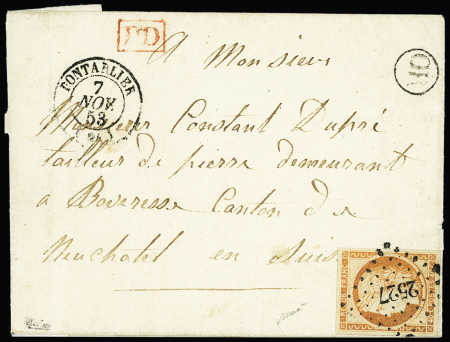 PD
PONTARLIER
7
NOV.
53
OR
A Monsieur
Monsieur Constant Dupré
tailleur de pierre demeurant
a Boveresse Canton de
Neuchatel en Suisse
2527